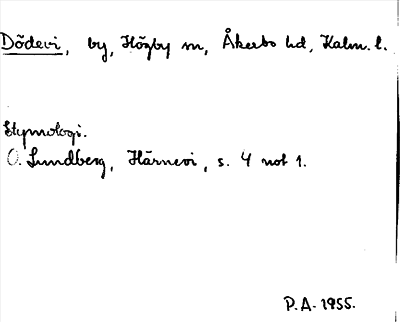 Dödevi, by, Högby sn, Åkerbo hd, Kalm. l.
Etymologi.
O. Lundberg, Härnevi, s. 4 not 1.
P.A. 1955.